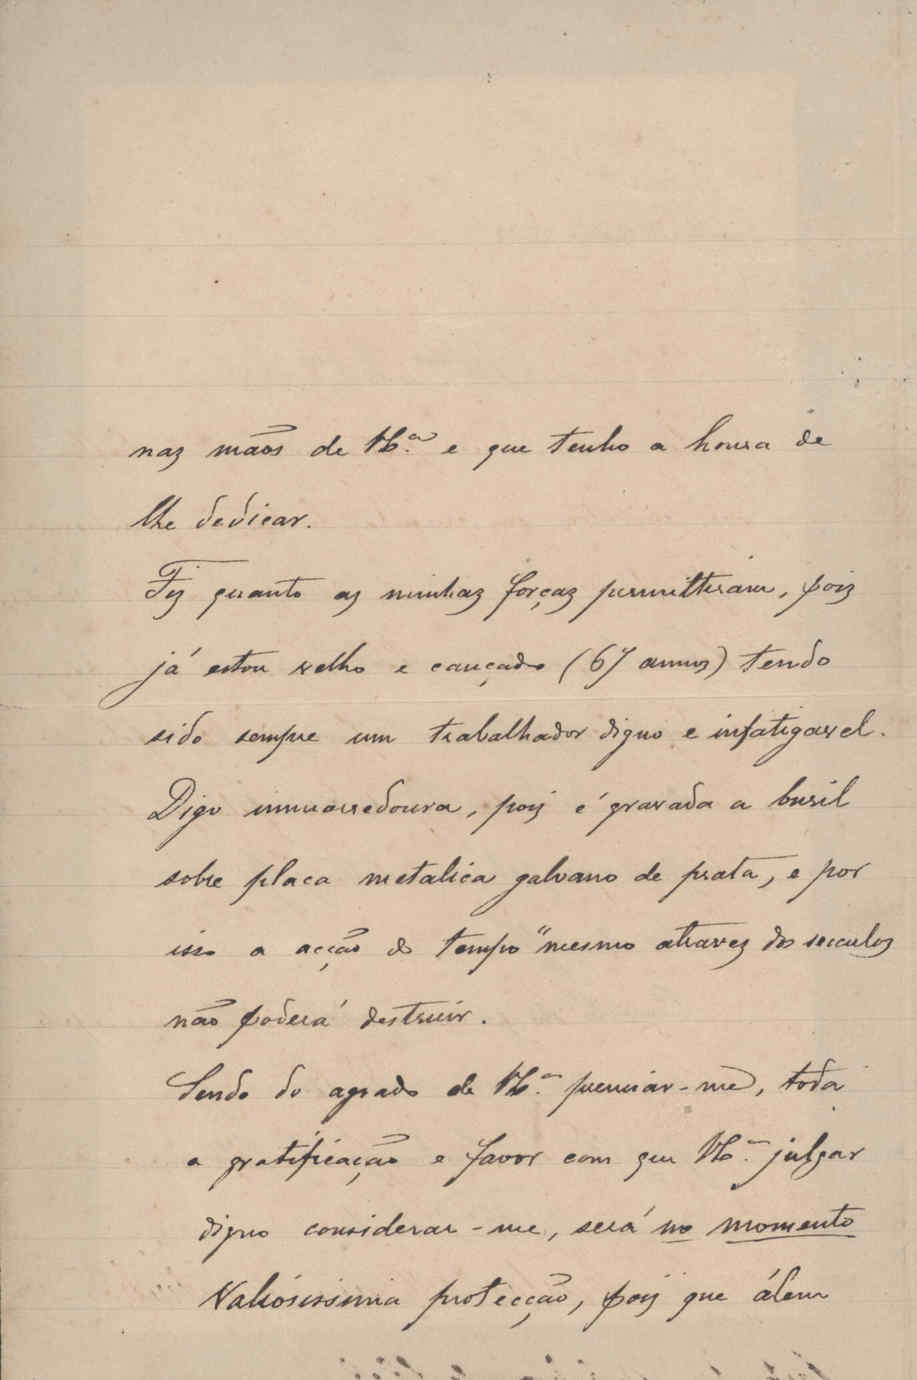 nas mãos de V. Ex.ª e que tenho a honra de
lhe dedicar.
Fiz quanto as minhas forças permittiram, pois
já estou velho e cançado (67 annos) tendo
sido sempre um trabalhador digno e infatigavel.
Digo immorredoura, pois é gravada a buril
sobre placa metalica galvano de prata, e por
isso a acção do tempo "mesmo atravez dos seculos
não poderá destruir.
Sendo do agrado de V. Ex.ª premiar-me, toda
a gratificação e favor com que V. Ex.ª julgar
digno considerar-me, será no momento
Valiósissima protecção, pois que álem